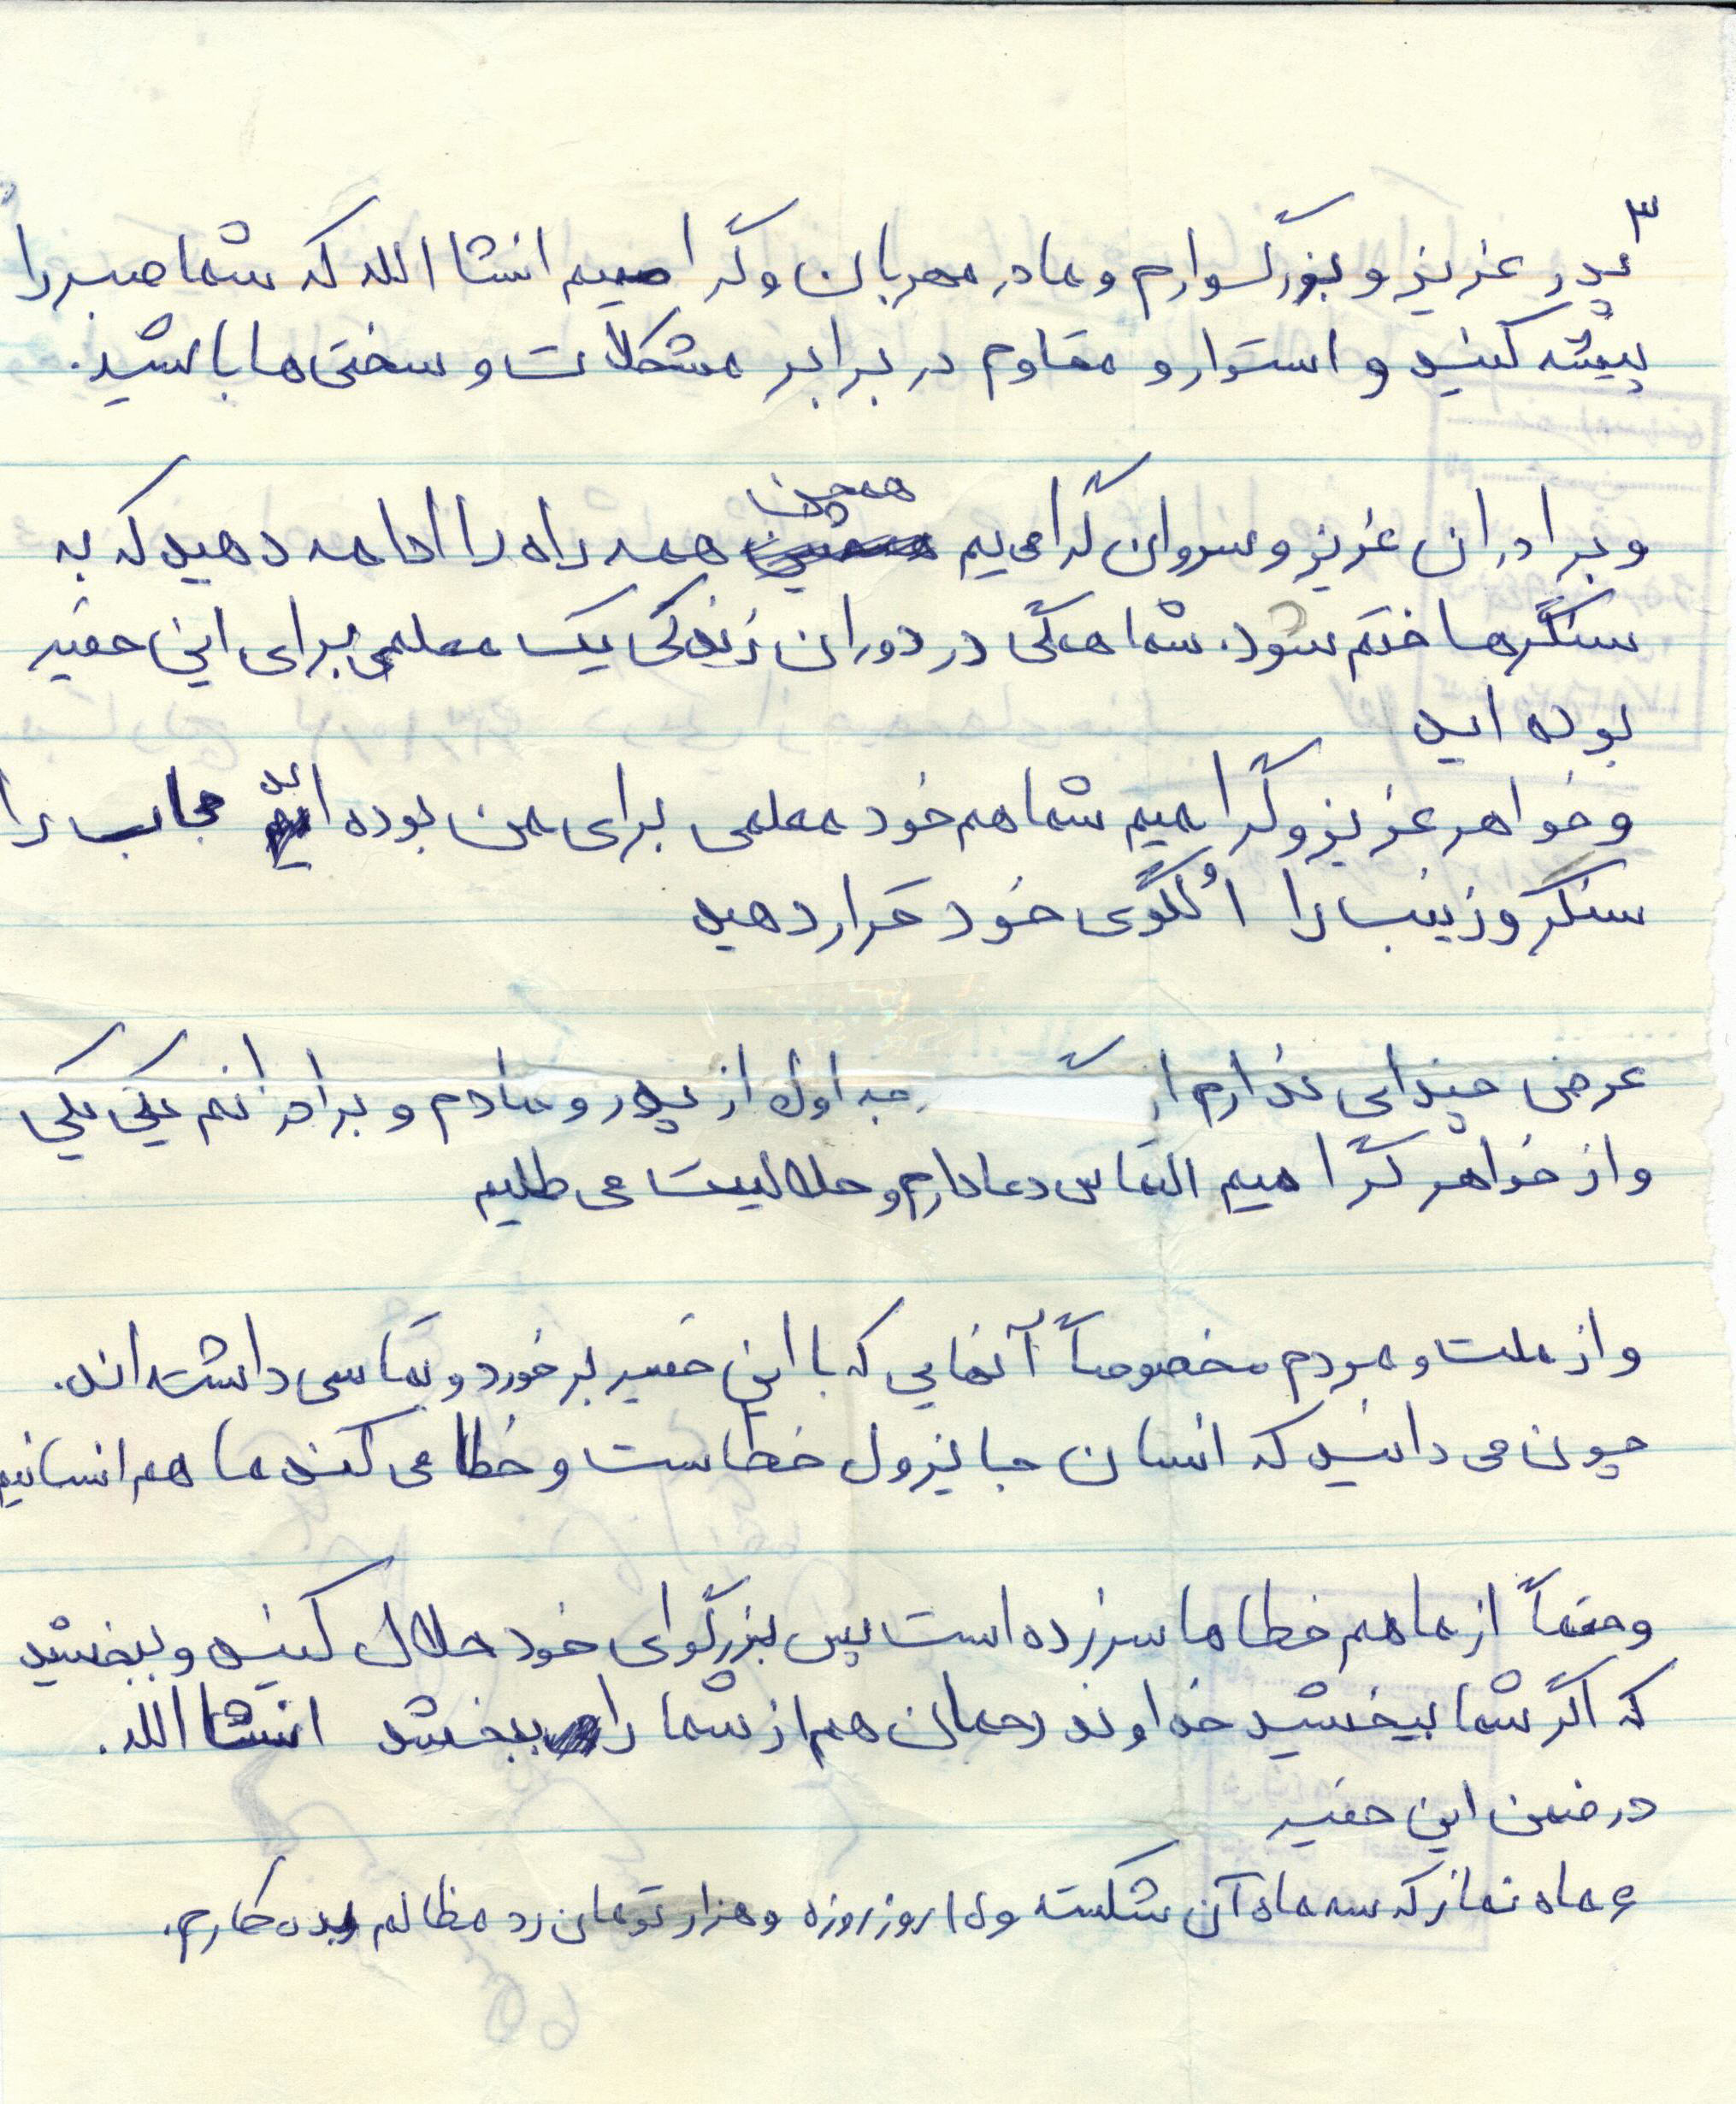 ۳
پدر عزیز و بزرگسوارم و مادر مهربان و گرامییم انشا الله که شما صبر را
پیشه کنید و استوار و مقاوم در برابر مشکلات و سختی ها باشید.
و برادران عزیز و سروان گرامی یم همچون همه راه را ادامه دهید که به
سنگرها ختم شود. شما همگی در دوران زندگی یک معلمی برای این حقیر
بوده اید
و خواهر عزیز و گرامیم شما هم خود معلمی برای من بوده اید حجاب را
سنگر و زینب را الگوی خود قرار دهید
عرض چندانی ندارم از جه اول از پدر و مادم و برادرانم یکی یکی
و از خواهر گرامیم التماس دعا دارم و حلالیت می طلبم
و از ملت و مردم مخصوصاً آنهایی که با این حقیر برخورد و تماسی داشته اند.
چون می دانید که انسان جایزول خطاست و خطا می کند ما هم انسانیم
و حتماً از ما هم خطا ها سرزده است پس بزرگوای خود حلال کنید و ببخشید
که اگر شما ببخشید خداوند رحمان هم از شما را ببخشد انشا الله.
در ضمن این حقیر
۶ ماه نماز که سه ماه آن شکسته و ۱۵ روز روزه و هزار تومان رد مظالم بدهکارم.